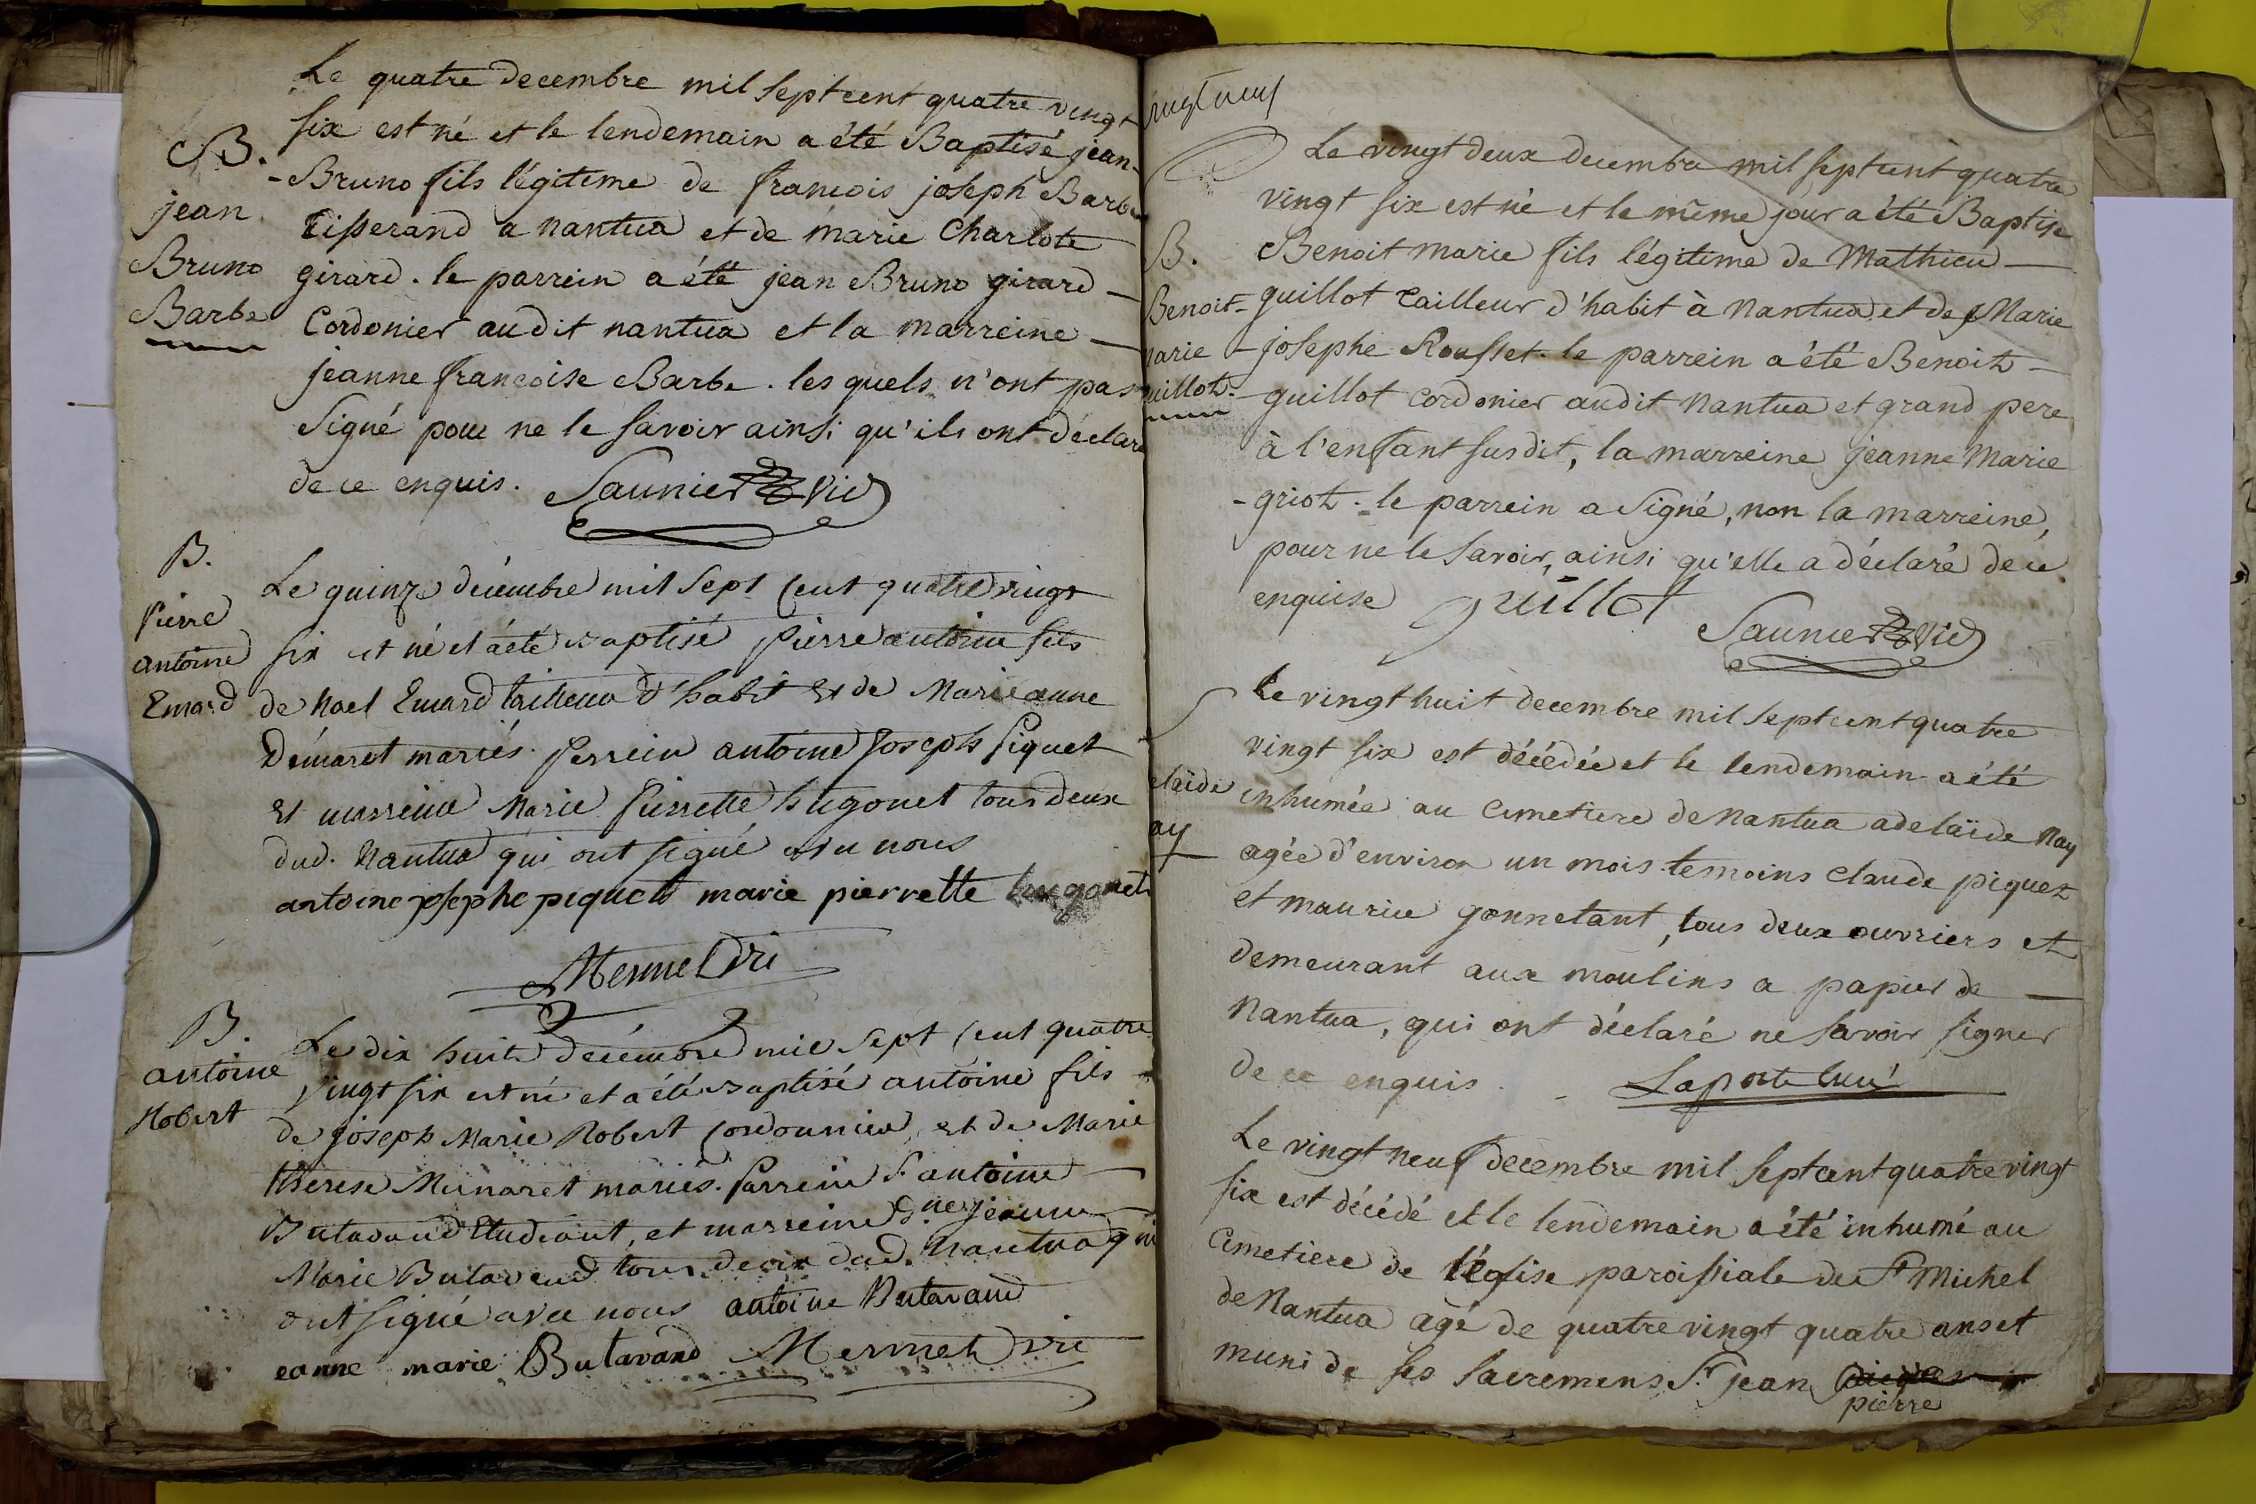 Le quatre decembre mil sept cent quatre vingt
six est né et le lendemain a été Baptisé jean-
B.
-Bruno fils légitime de francois joseph Barbe
jean
tisserand a nantua et de marie Charlote
Bruno
girard. le parrein a été jean Bruno girard
Barbe
Cordonier audit nantua et la marreine
jeanne francoise Barbe. les quels n'ont pas
signé pour ne le savoir ainsi qu'ils ont déclaré
de ce enquis. Saunier vic
B.
Pierre
antoine
Emard
Le quinze décembre mil sept cent quatre vingt
six est né et a été baptisé pierre antoine fils
de Noel Emard tailleur d'habit Et de Marie anne
Démaret mariés. Perrein antoine Joseph Piquet
Et marreine Marie Pierrette hugonet tous deux
dud. Nantua qui ont signé avec nous
antoine josephe piquet marie pierrette hugonet
Mermet Vri
B.
antoine
Robert
Le dix huit decémbre mil sept cent quatre
vingt six est né et a été baptisé antoine fils
de joseph Marie Robert cordounier, et de Marie
therese Munaret mariés. Parrein S. antoine
Butavand Etudiant, et marreine d.ne jeanne
Marie Butavand tous deux dud. Nantua qui
ont signé avec nous antoine Butavand
eanne marie Butavand Mermet Vri
vingt neuf
Le vingt deux decembre mil sept cent quatre
vingt six est né et le même jour a été Baptisé
B.
Benoit marie fils légitime de Mathieu
Benoit-
guillot tailleur d'habit à Nantua et de Marie
arie
josephe Rousset. le parrein a été Benoit
uillot.
guillot cordonier audit Nantua et grand pere
à l'enfant susdit, la marreine jeanne Marie
-griot. le parrein a signé, non la marreine,
pour ne le savoir, ainsi qu'elle a déclaré de ce
enquise guillot
Saunier vic
Le vingt huit decembre mil sept cent quatre
vingt six est décédée et le lendemain a été
elaïde
inhumée au cimetiere de Nantua adelaïde Nay
ay
agée d'environ un mois. temoins claude piquet
et maurice gonnetant, tous deux ouvriers et
demeurant aux moulins a papier de
Nantua, qui ont déclaré ne savoir signer
de ce enquis. Laporte curé
Le vingt neuf decembre mil sept cent quatre vingt
six est décédé et le lendemain a été inhumé au
Cimetiere de l'église paroissiale de St Michel
de Nantua agé de quatre vingt quatre ans et
muni de ses sacremens Sr jean
pierre